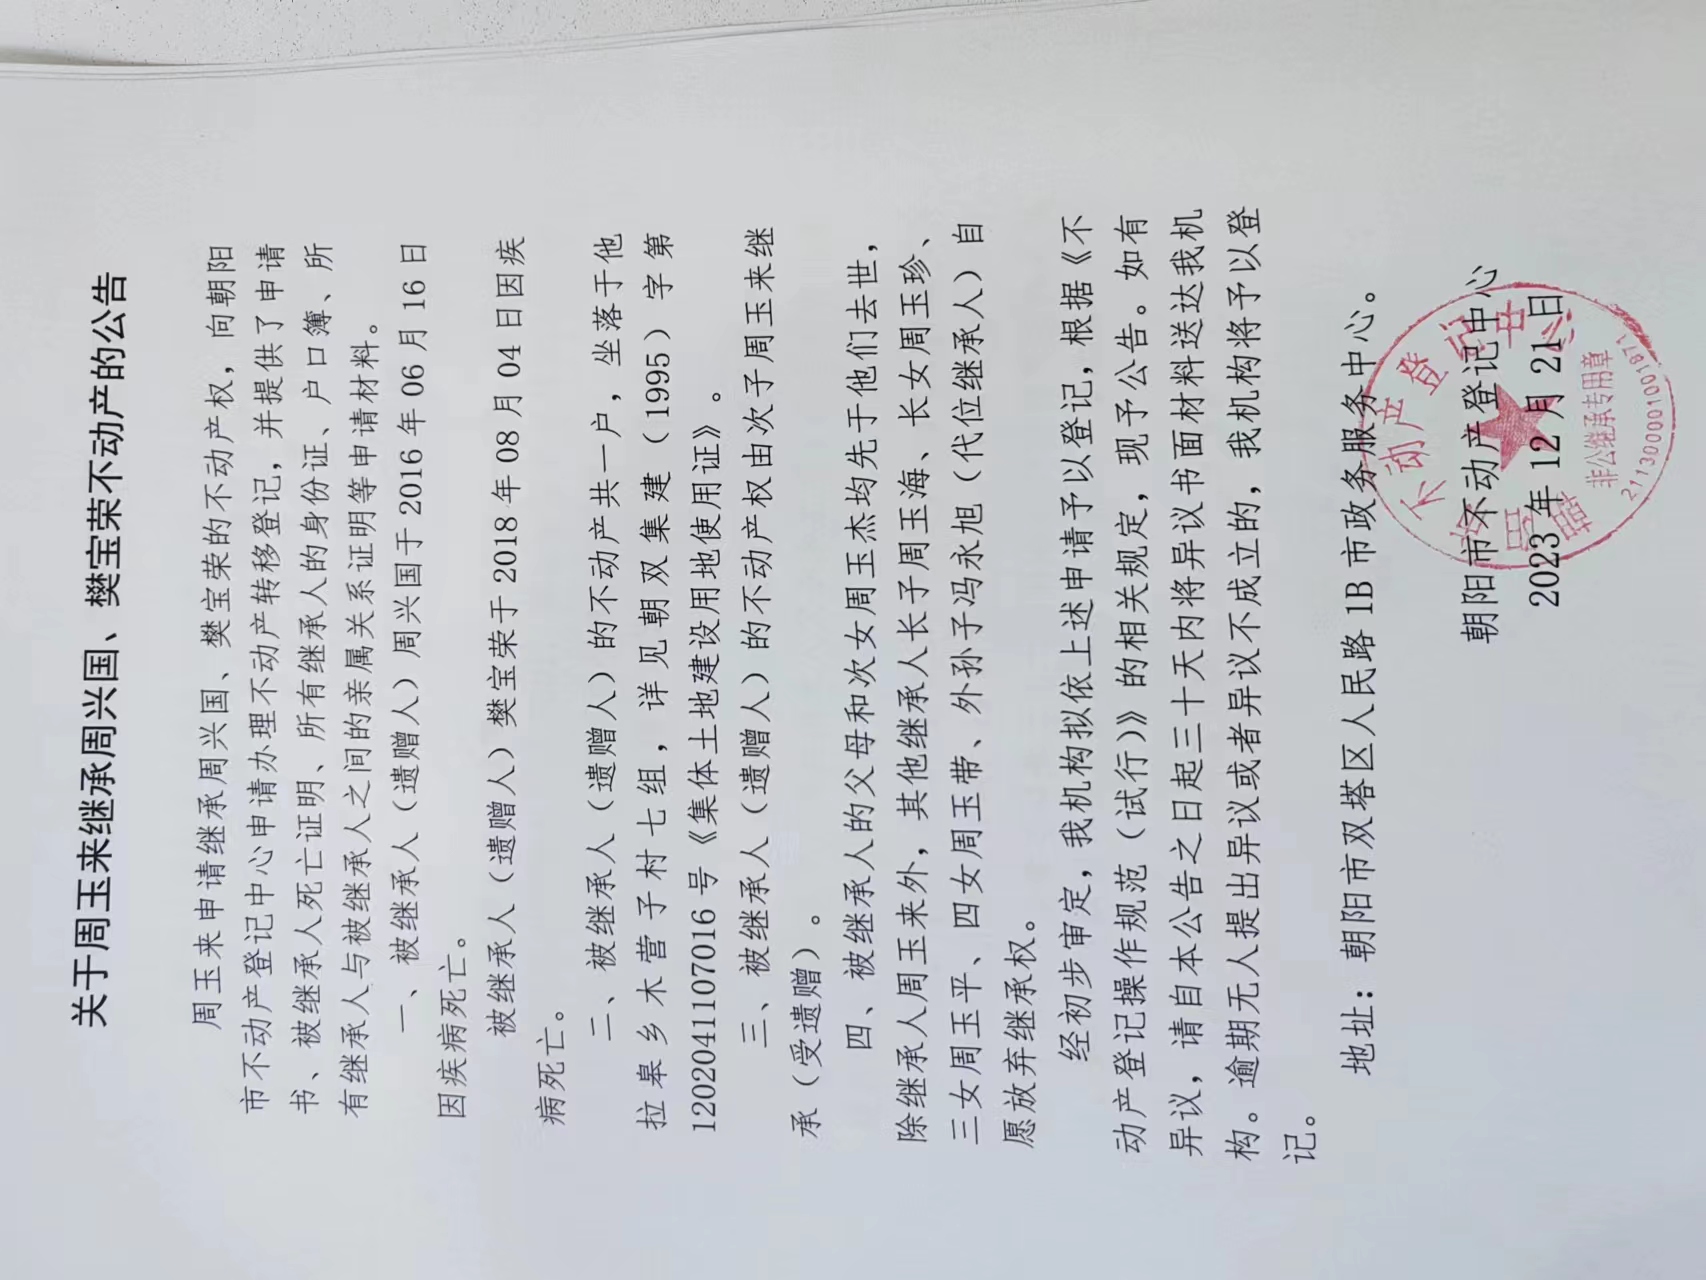 关于周玉来继承周兴国、樊宝荣不动产的公告
周玉来申请继承周兴国、樊宝荣的不动产权，向朝阳
市不动产登记中心申请办理不动产转移登记，并提供了申请
书、被继承人死亡证明、所有继承人的身份证、户口簿、所
有继承人与被继承人之间的亲属关系证明等申请材料。
一、被继承人（遗赠人）周兴国于 2016 年 06 月 16 日
因疾病死亡。
被继承人（遗赠人）樊宝荣于 2018 年 08 月 04 日因疾
病死亡。
二、被继承人（遗赠人）的不动产共一户，坐落于他
拉皋乡木营子村七组，详见朝双集建（1995）字第
120204110701​6 号《集体土地建设用地使用证》。
三、被继承人（遗赠人）的不动产权由次子周玉来继
承（受遗赠）。
四、被继承人的父母和次女周玉杰均先于他们去世，
除继承人周玉来外，其他继承人长子周玉海、长女周玉珍、
三女周玉平、四女周玉带、外孙子冯永旭（代位继承人）自
愿放弃继承权。
经初步审定，我机构拟依上述申请予以登记，根据《不
动产登记操作规范（试行）》的相关规定，现予公告。如有
异议，请自本公告之日起三十天内将异议书面材料送达我机
构。逾期无人提出异议或者异议不成立的，我机构将予以登
记。
地址：朝阳市双塔区人民路 1B 市政务服务中心。
朝阳市不动产登记中心
2023 年 12 月 21 日
不动产登记中心
非公继承专用章
2113000010​01971